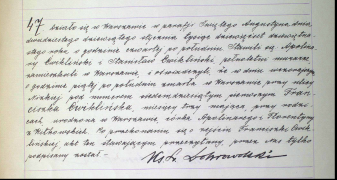 47 Działo się w Warszawie w parafii Świętego Augustyna dnia
dwudziestego dziewiątego stycznia tysiąc dziewięćset dziewiętna-
stego roku o godzinie czwartej po południu. Stawili się Apolina-
ry Ćwikliński i Stanisław Ćwikliński pełnoletni murarze
zamieszkali w Warszawie, i oświadczyli, że w dniu wczorajszym
o godzinie piątej po południu zmarła w Warszawie przy ulicy
Niskiej pod numerem siedemdziesiątym pierwszym Fran-
ciszka Ćwiklińska, miesięcy trzy mająca, przy rodzi-
cach, urodzona w Warszawie, córka Apolinarego i Florentyny
z Witkowskich. Po przekonaniu się o zejściu Franciszki Ćwik-
lińskiej, akt ten stawającym przeczytany, przez Nas tylko
podpisany został. —
Ks. Dobrowolski